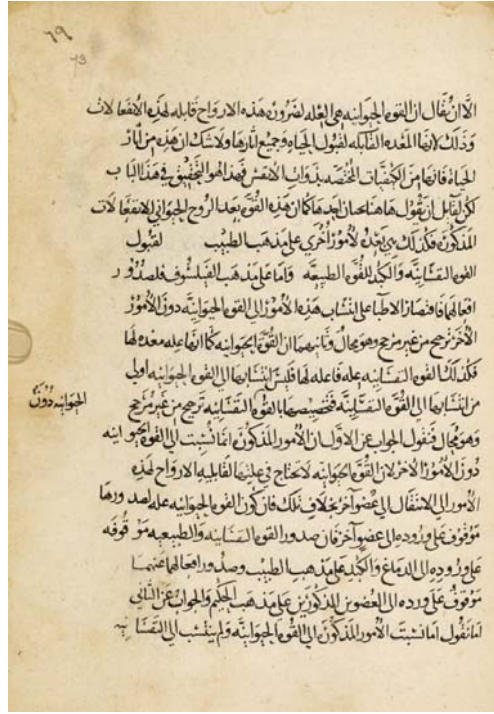 ٦٩
73
الا ان يقال ان القوه الحيوانيه هي العله لضرورة هذه الارواح قابله لهذه الانفعالات
وذلك لانها المعده القابله لقبول الحياه وجميع آثارها ولا شك ان هذه من آثار
الحياه فانها من الكيفيات المختصه بذوات الانفس فهذا هو التحقيق في هذا الباب
لكن لقايل ان يقول هاهنا بحثان احدهما كما ان هذه القوه تعد الروح الحيواني للانفعالات
المذكوره فكذلك هي تعده لامور أخرى على مذهب الطبيب لقبول
القوه النفسانيه والكبد للقوه الطبيعيه واما على مذهب الفيلسوف فلصدور
افعالهما فاقتصار الاطبا على انتساب هذه الامور الى القوه الحيوانيه دون الامور
الأخر ترجيح من غير مرجح وهو محال وثانيهما ان القوه الحيوانيه كما انها عله معده لها
فكذلك القوه النفسانيه عله فاعله لها فليس انتسابها الى القوه الحيوانيه اولى
من انتسابها الى القوه النفسانيه فتخصيصها بالقوه النفسانيه ترجيح من غير مرجح
الحيوانيه دون
وهو محال فنقول الجواب عن الاول ان الامور المذكوره انما نسبت الى القوه الحيوانيه
دون الامور الاخر لان القوه الحيوانيه لا تحتاج في عليتها لقابليه الارواح لهذه
الأمور الى الانتقال الى عضو آخر بخلاف تلك فان كون القوه الحيوانيه عله لصدورها
موقوف على وروده الى عضو آخر فان صدور القوه النفسانيه والطبيعيه موقوفه
على وروده الى الدماغ والكبد على مذهب الطبيب وصدور افعالهما عنهما
موقوف على ورده الى العضوين المذكورين على مذهب الحكيم والجواب عن الثاني
انا نقول انما نسبت الأمور المذكوره الى القوه الحيوانيه ولم ينسب الى النفسانيه